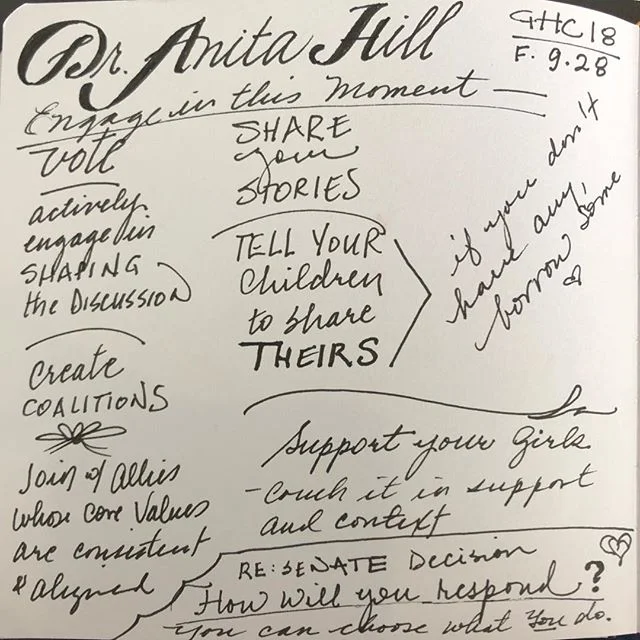 Dr. Anita Hill
GHC18
F. 9.28
Engage in this Moment —
VOTE
actively
engage in
SHAPING
the DISCUSSION
Create
COALITIONS
Join w/ Allies
whose core values
are consistent
& aligned
SHARE
your
STORIES
TELL YOUR
Children
to share
THEIRS
if you don't
have any,
borrow some
Support your Girls
- couch it in support
and context
RE: SENATE Decision
How will you respond?
You can choose what You do.